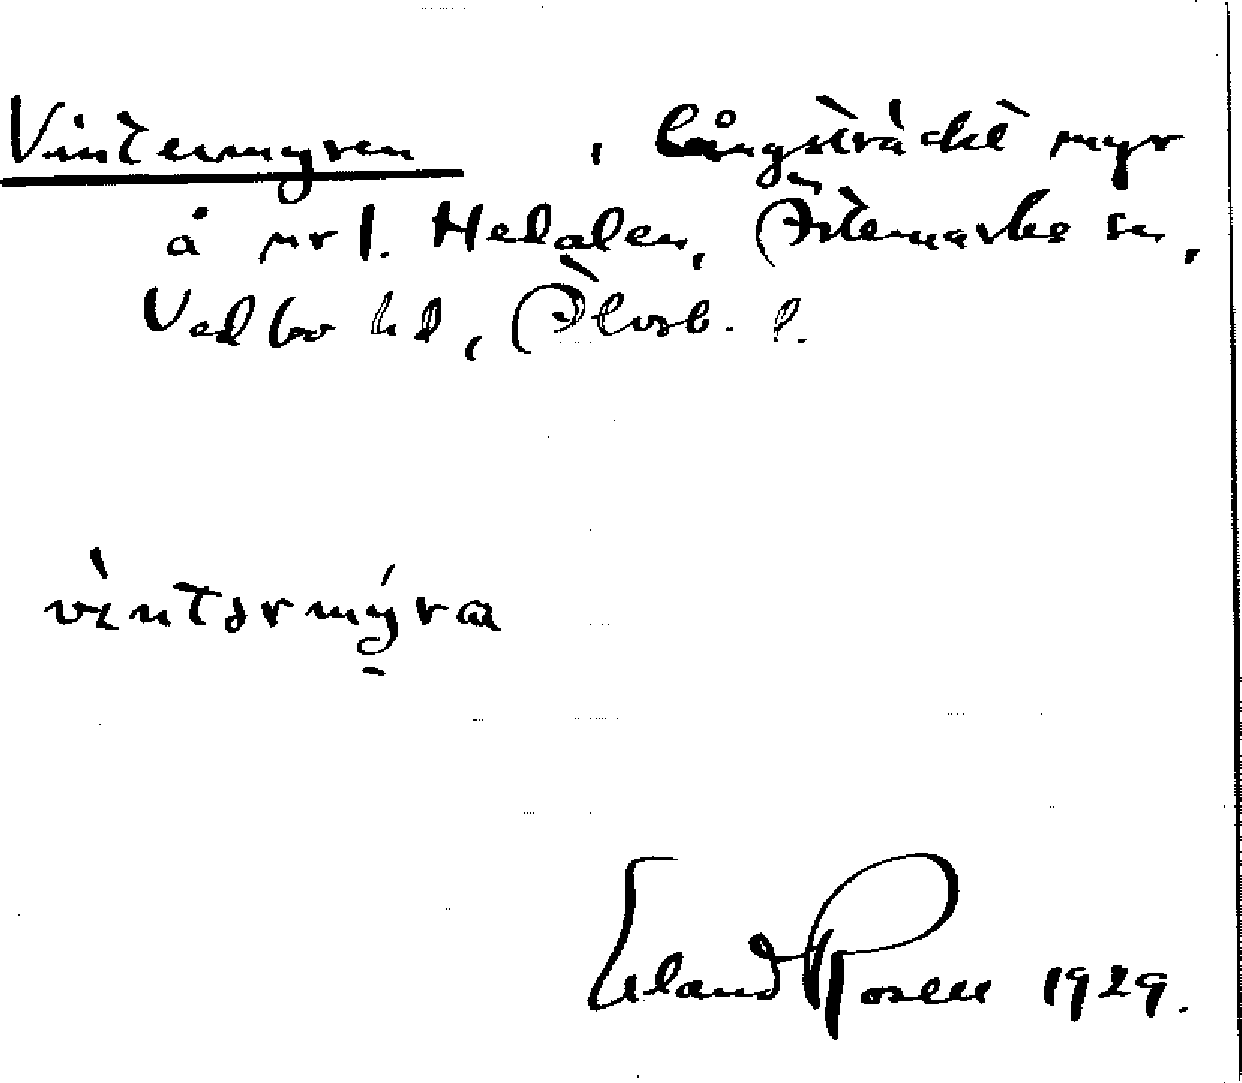 Vintermyren, långsträckt myr
å nr 1. Hedalen, Ärtemarks sn,
Vedbo hd, Älvsb. l.
vìntərmýra
Erland Rosell 1929.